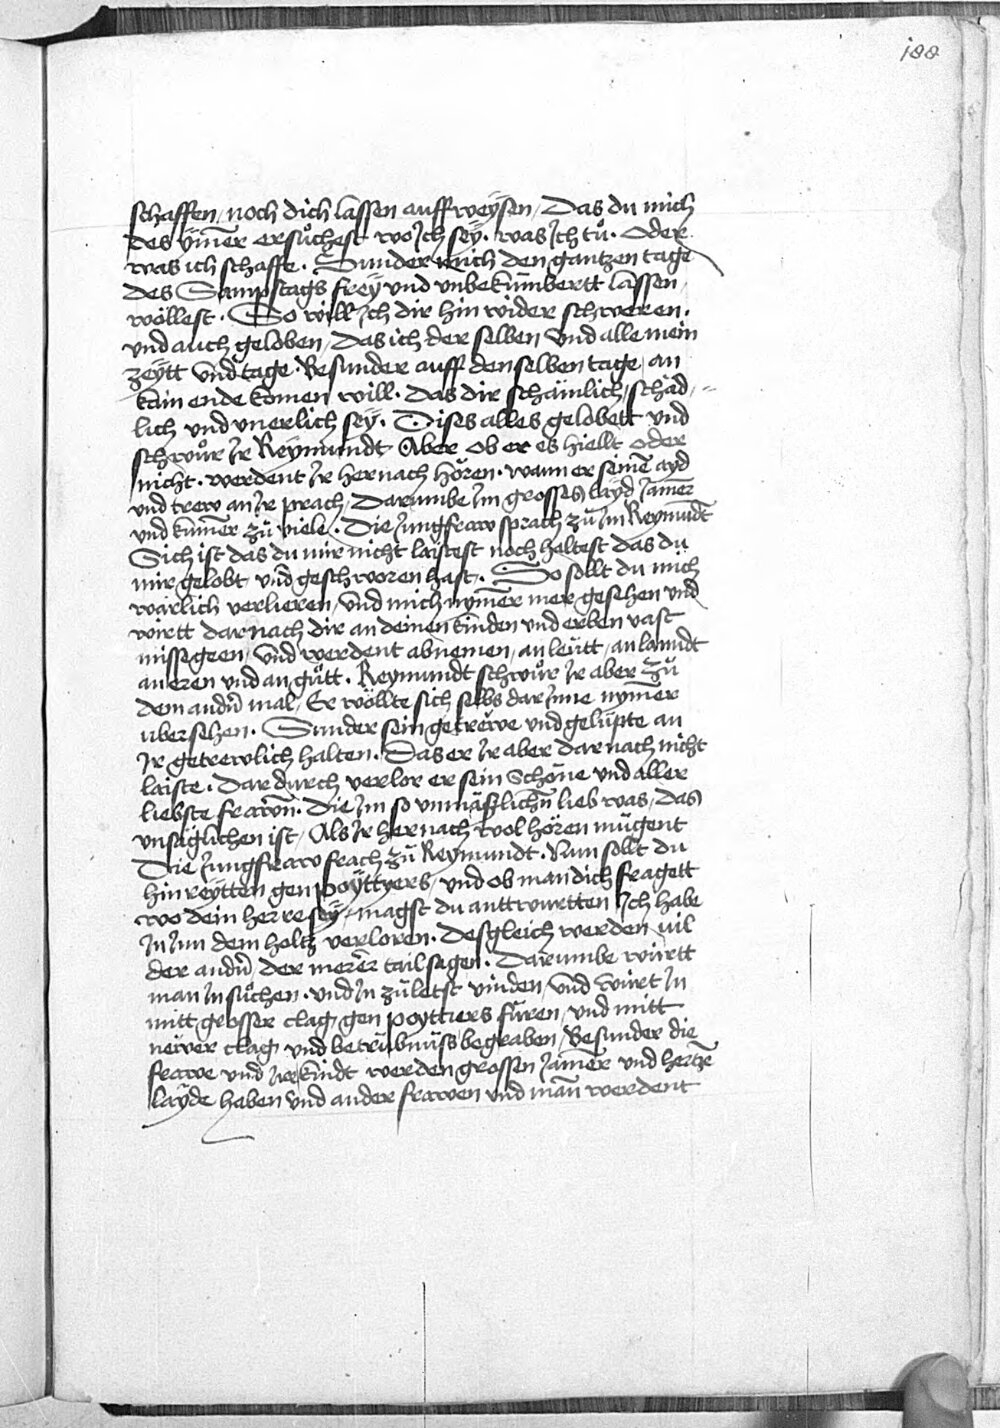 188
schaffen / noch dich lassen auffweÿsen / Das du mich
des ÿmer ersůchest wo Jch seÿ · was Jch tů · Oder
was ich schaffe · Sunder mich den gantzen tage
des Sampstags freÿ und unbekümbertt lassen /
wöllest · So will Jch dir hin wider schweren ·
und auch geloben / Das ich der selben und alle mein
zeÿtt und tage · Besunder auff den selben tage / an
kain ende komen will · das dir schämlich / schäd //
lich und unerlich seÿ · Dises alles gelobett und
schwůr Jr Reÿmundt Aber ob er es hiellt oder
nicht · werdent Jr hernach hören · wann er seinē ayd
und trew an Jr prach / Darumbe Jm grosses layd Jamer
und kumer zů viele · Die Jungfraw sprach zů Jm Reymūdt
Sich ist das du mir nicht laistest noch heltest das du
mir gelobt und geschworen hast · So sollt du mich
wärlich verlieren / und mich nymer mer gesehen und
wirtt darnach dir an deinen kinden und erben vast
missgeen / und werdent abnemen / an leütt / an lanndt
an eren und an gůtt · Reymundt schwůr Jr aber zů
dem andn̄ mal / Er wöllte sich selbs dar Jnne nymer
ubersehen · Sunder sein getrewe und gelüpte an
Jr getrewlich halten · Das er Jr aber darnach nicht
laiste · Dardurch verlor er sein Schöne und aller
liebste frawen · Die Jm so unmäßlichn̄ lieb was / das
unsäglichen ist / Als Jr hernach wol hören mügent
Die Jungfraw sprach zů Reymundt · Nun sollt du
hin reÿtten gen poÿttyers / und ob man dich fragett
wo dein herre seÿ / magst du anttwurtten Jch habe
Jn Jnn dem holtz verloren · Desgleich werden vil
der andn̄ der merer tail sagen · Darumbe wirtt
man Jn sůchen · und Jn zůletst vinden / und wirt Jn
mitt grosser clag / gen poyttiers füren / und mitt
newer clag und betrübnüss begraben / Besunder die
frawe und Jre kindt werden grossen Jamer und hertzē
layde haben und ander frawen und man̄ werdent